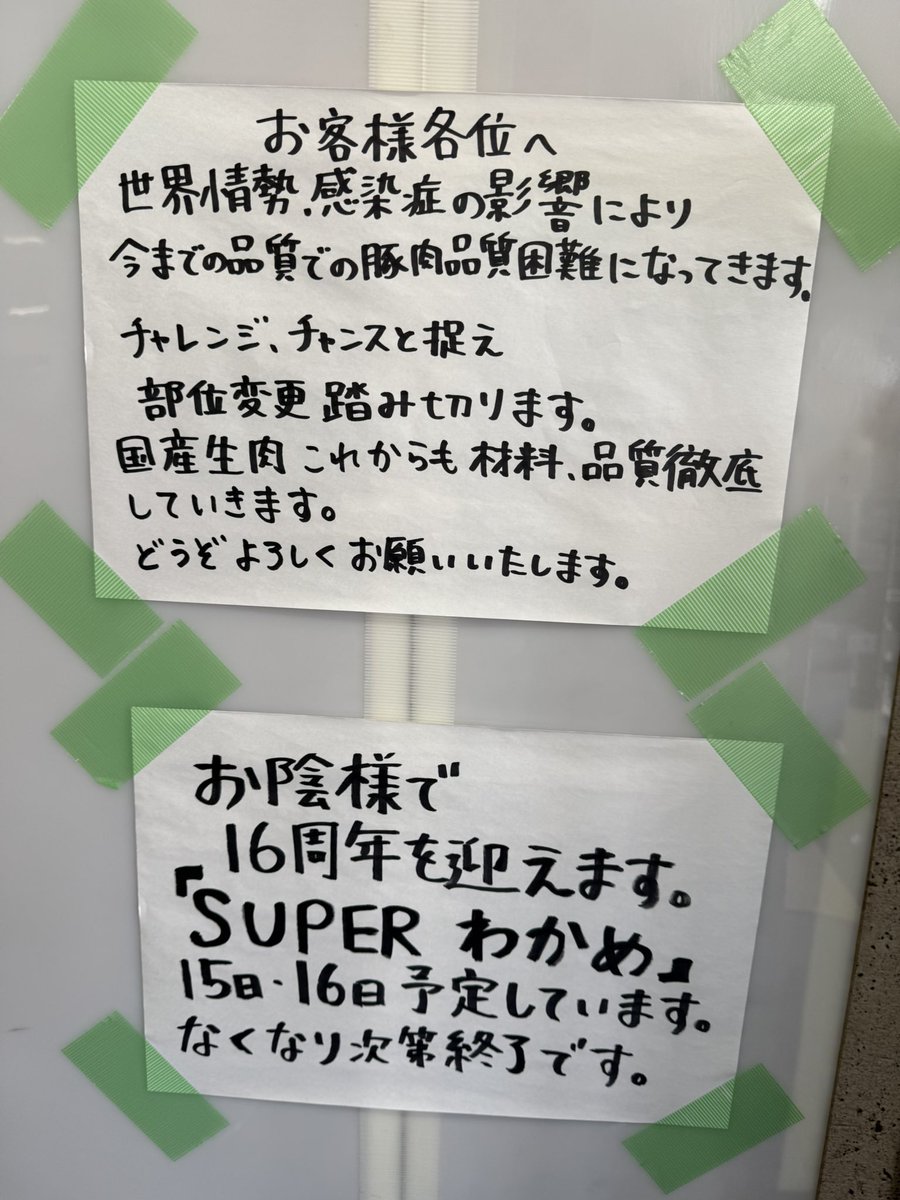 お客様各位へ
世界情勢、感染症の影響により
今までの品質での豚肉品質困難になってきます。
チャレンジ、チャンスと捉え
部位変更踏み切ります。
国産生肉 これからも 材料、品質徹底
していきます。
どうぞよろしくお願いいたします。
お陰様で
16周年を迎えます。
『SUPER わかめ』
15日・16日予定しています。
なくなり次第終了です。